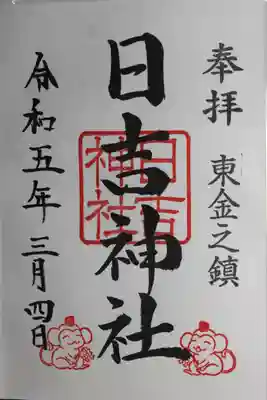 奉拝
東金之鎮
日吉神社
日吉
神社
令和五年三月四日